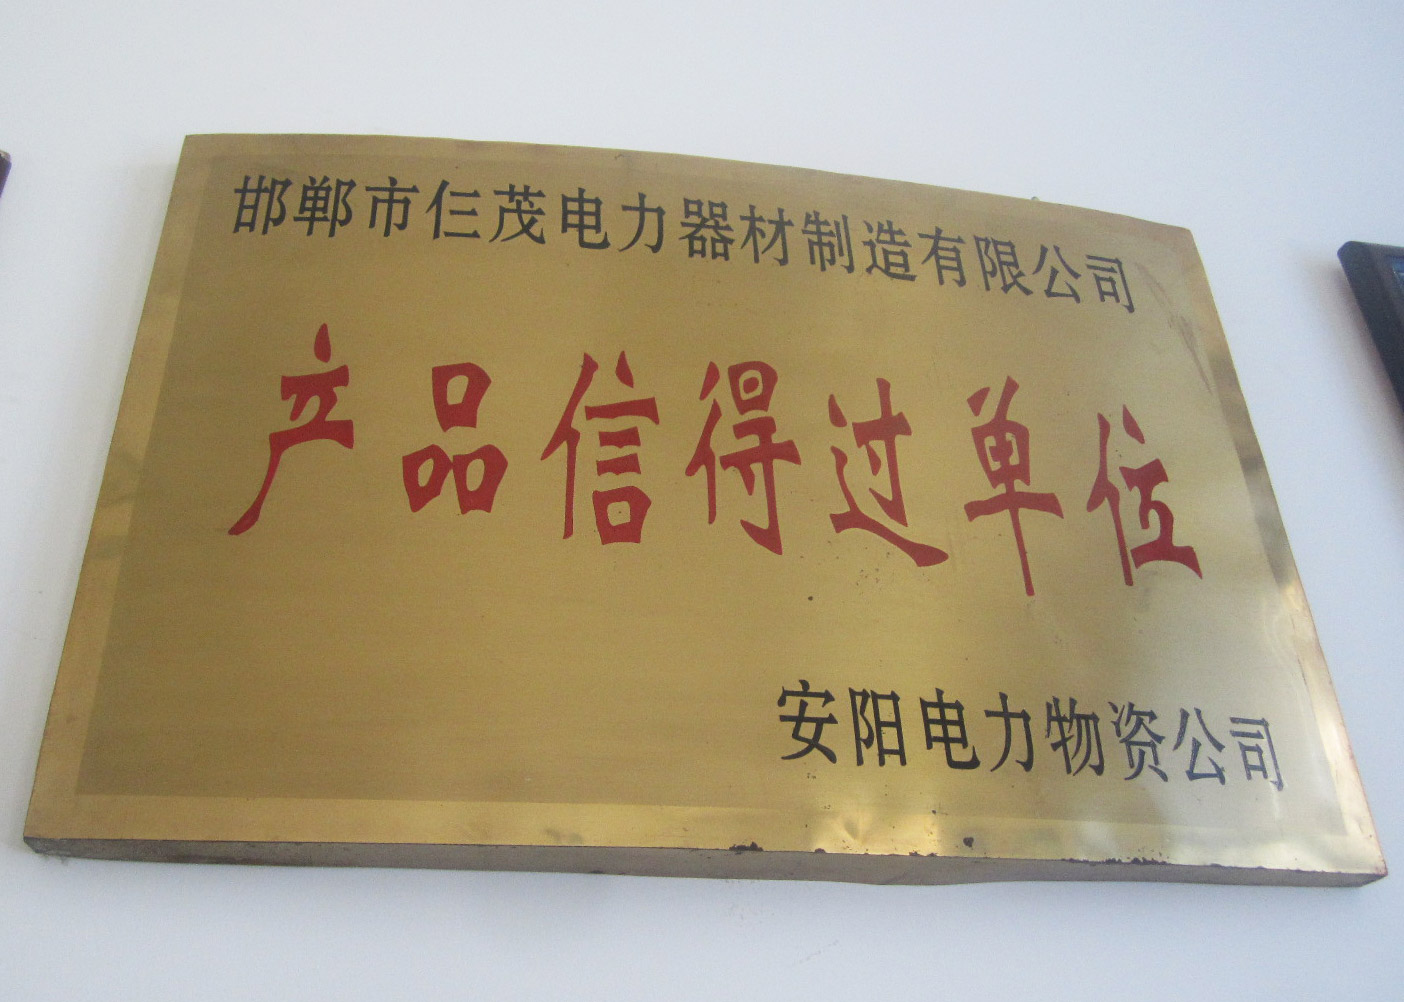 邯郸市仨茂电力器材制造有限公司
产品信得过单位
安阳电力物资公司